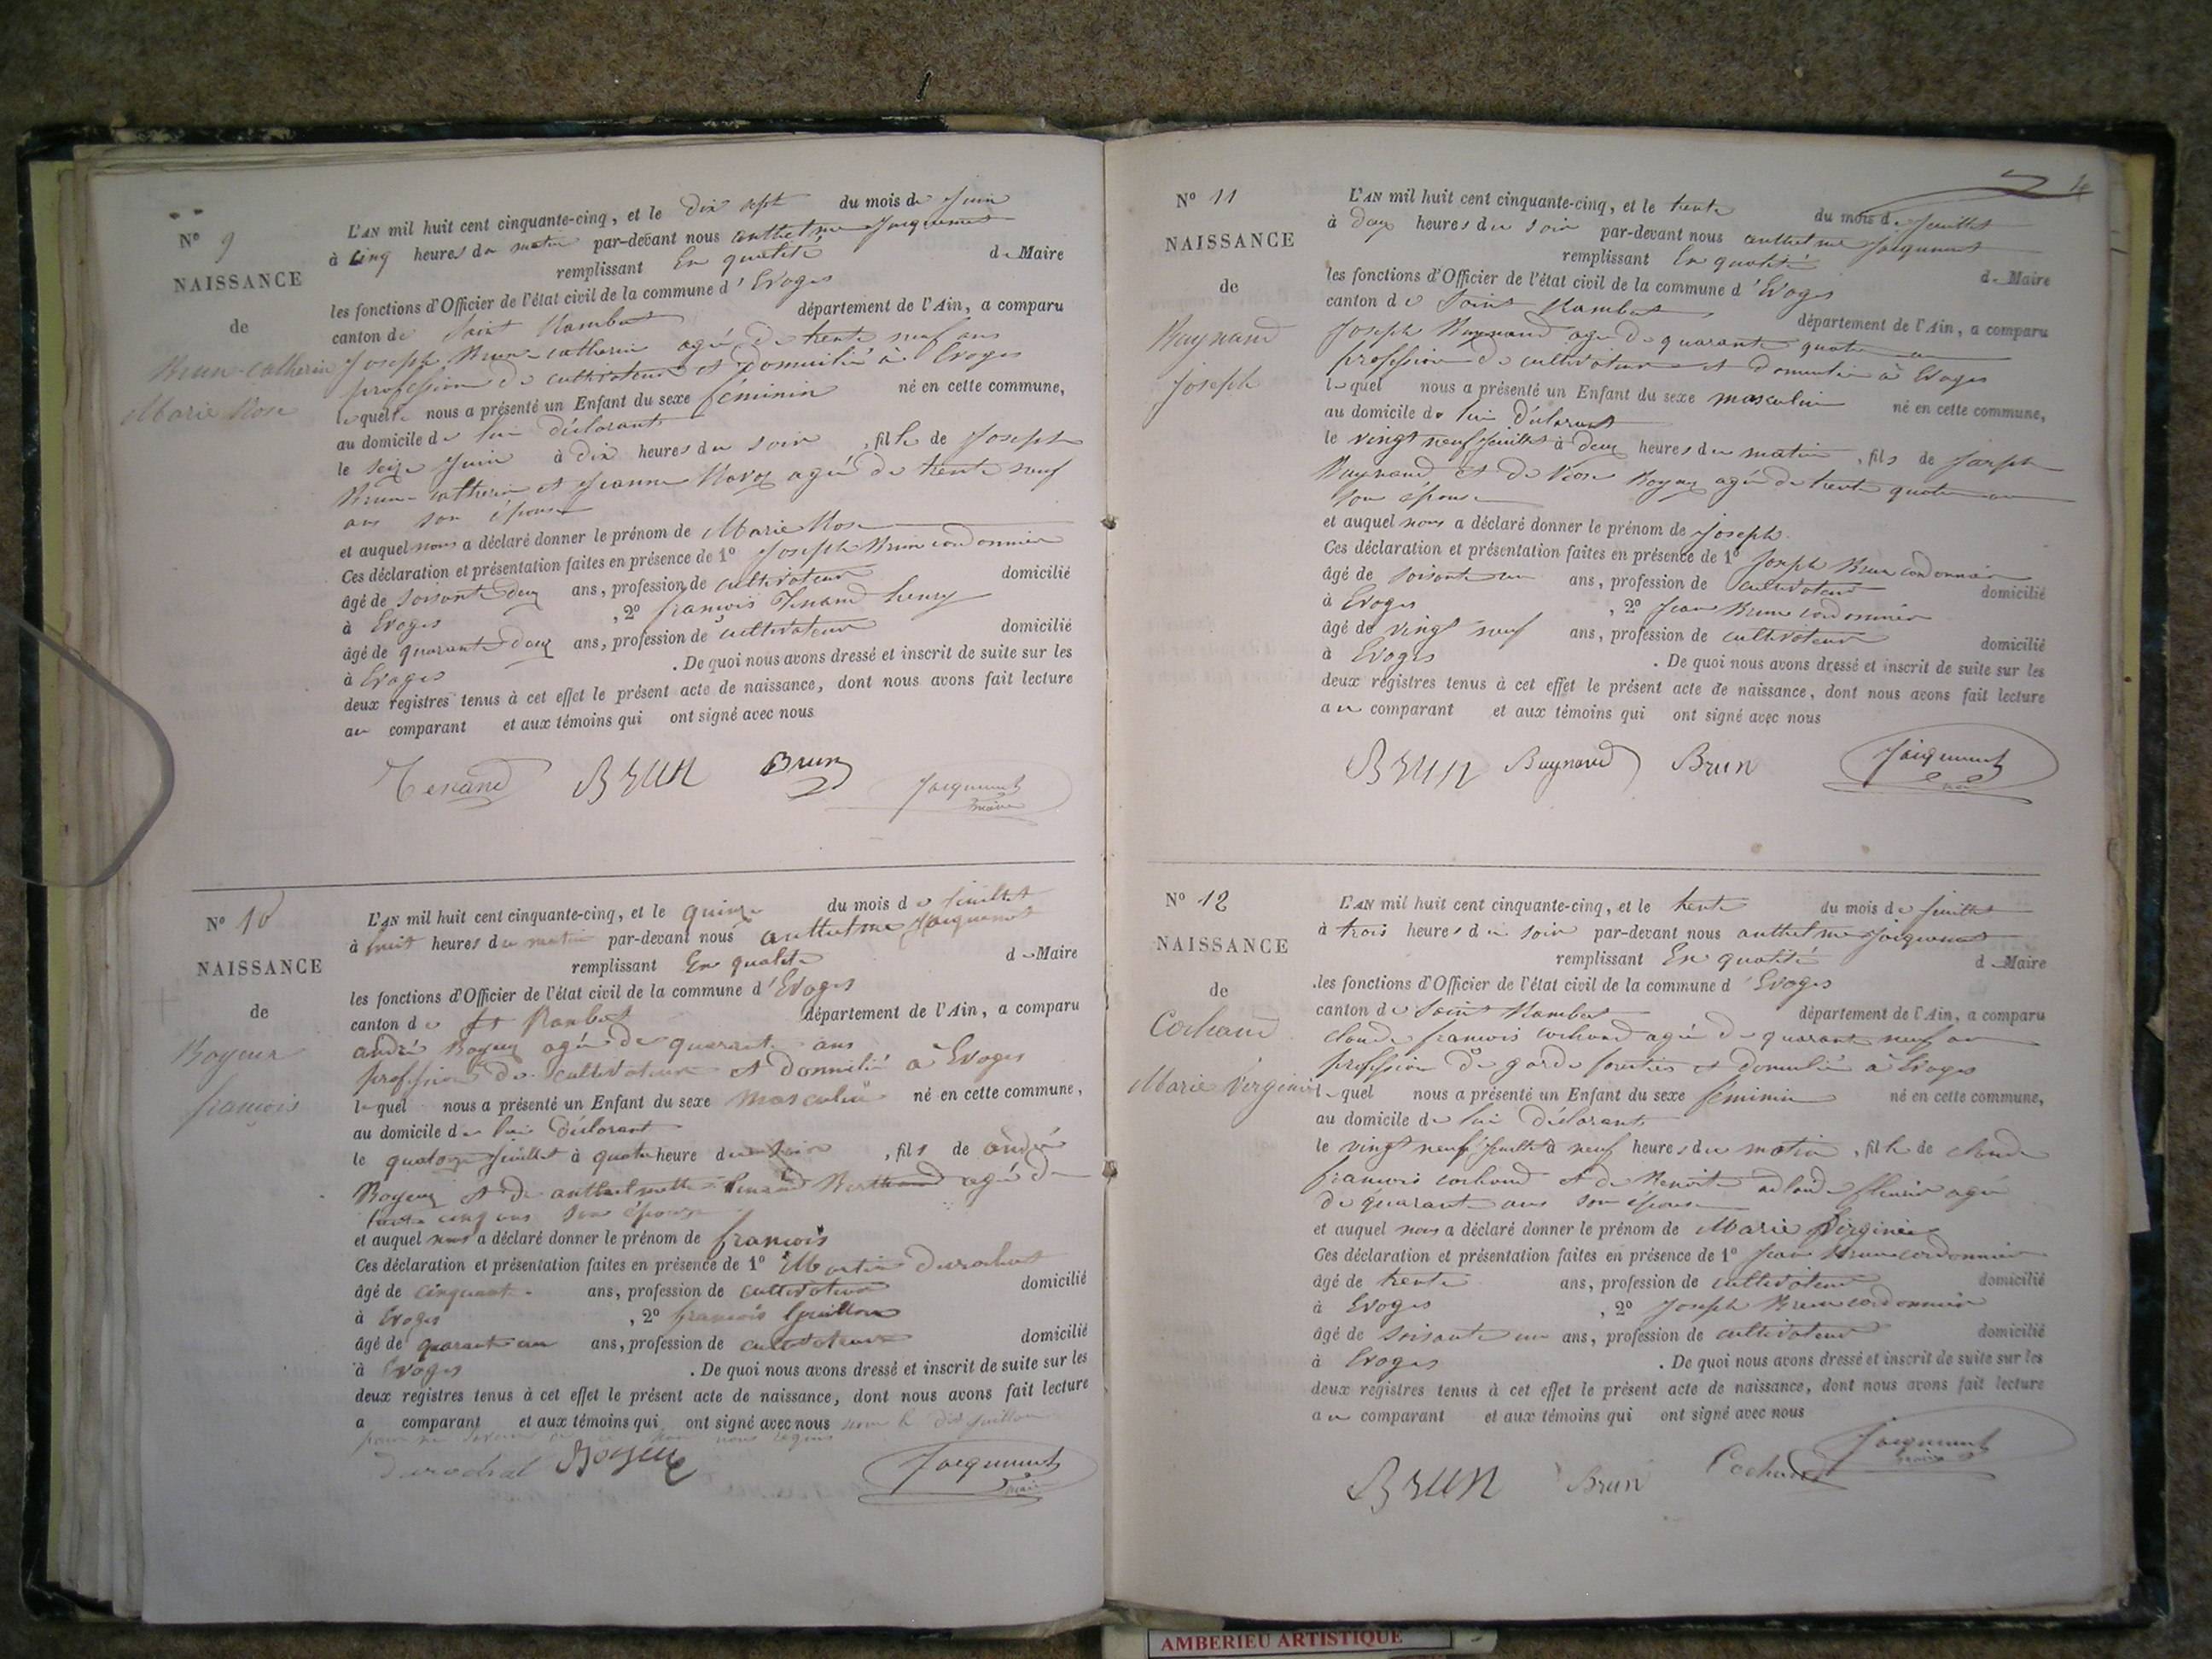 N° 9
NAISSANCE
de
Brun-Catherin
Marie Rose
L'AN mil huit cent cinquante-cinq, et le dix sept du mois de Juin
à cinq heures du matin par-devant nous anthelme Jacquemet
remplissant En qualité de Maire
les fonctions d'Officier de l'état civil de la commune d'Evoges
canton de Saint Rambert département de l'Ain, a comparu
Joseph Brun-Catherin agé de trente neuf ans
profession de cultivateur et domicilié à Evoges
lequel nous a présenté un Enfant du sexe féminin né en cette commune,
au domicile de lui déclarant
le seize Juin à dix heures du soir, fille de Joseph
Brun-Catherin et Jeanne Ravoz agée de trente neuf
ans son épouse
et auquel nous a déclaré donner le prénom de Marie Rose
Ces déclaration et présentation faites en présence de 1° Joseph Brun cordonnier
âgé de soisante deux ans, profession de cultivateur domicilié
à Evoges, 2° françois Tenand henry
âgé de quarante deux ans, profession de cultivateur domicilié
à Evoges. De quoi nous avons dressé et inscrit de suite sur les
deux registres tenus à cet effet le présent acte de naissance, dont nous avons fait lecture
au comparant et aux témoins qui ont signé avec nous
Tenand BRUN Brun Jacquemet
maire
N° 10
NAISSANCE
de
Boyeux
françois
L'AN mil huit cent cinquante-cinq, et le quinze du mois de Juillet
à huit heures du matin par-devant nous anthelme Jacquemet
remplissant En qualité de Maire
les fonctions d'Officier de l'état civil de la commune d'Evoges
canton de St Rambert département de l'Ain, a comparu
andré Boyeux agé de quarante ans
profession de cultivateur et domicilié à Evoges
lequel nous a présenté un Enfant du sexe masculin né en cette commune,
au domicile de lui déclarant
le quatorze Juillet à quatre heure du soir, fils de andré
Boyeux et de anthelmette Tenand Berthand agé de
trente cinq ans son épouse
et auquel nous a déclaré donner le prénom de françois
Ces déclaration et présentation faites en présence de 1° Martin Durochat
âgé de cinquante ans, profession de cultivateur domicilié
à Evoges, 2° françois Guillon
âgé de quarante un ans, profession de cultivateur domicilié
à Evoges. De quoi nous avons dressé et inscrit de suite sur les
deux registres tenus à cet effet le présent acte de naissance, dont nous avons fait lecture
a comparant et aux témoins qui ont signé avec nous
Durochat Boyeux Jacquemet
maire
N° 11
NAISSANCE
de
Raynaud
Joseph
L'AN mil huit cent cinquante-cinq, et le trente du mois de Juillet
à deux heures du soir par-devant nous anthelme Jacquemet
remplissant En qualité de Maire
les fonctions d'Officier de l'état civil de la commune d'Evoges
canton de Saint Rambert département de l'Ain, a comparu
Joseph Raynaud agé de quarante quatre ans
profession de cultivateur et domicilié à Evoges
lequel nous a présenté un Enfant du sexe masculin né en cette commune,
au domicile de lui déclarant
le vingt neuf Juillet à deux heures du matin, fils de Joseph
Raynaud et de Rose Boyeux agée de trente quatre ans
son épouse
et auquel nous a déclaré donner le prénom de Joseph
Ces déclaration et présentation faites en présence de 1° Joseph Brun cordonnier
âgé de soisante un ans, profession de cultivateur domicilié
à Evoges, 2° Jean Brun cordonnier
âgé de vingt neuf ans, profession de cultivateur domicilié
à Evoges. De quoi nous avons dressé et inscrit de suite sur les
deux registres tenus à cet effet le présent acte de naissance, dont nous avons fait lecture
au comparant et aux témoins qui ont signé avec nous
BRUN Raynaud Brun Jacquemet
N° 12
NAISSANCE
de
Cochand
Marie Virginie
L'AN mil huit cent cinquante-cinq, et le trente du mois de Juillet
à trois heures du soir par-devant nous anthelme Jacquemet
remplissant En qualité de Maire
les fonctions d'Officier de l'état civil de la commune d'Evoges
canton de Saint Rambert département de l'Ain, a comparu
claude françois cochand agé de quarante neuf ans
profession de garde forestier et domicilié à Evoges
lequel nous a présenté un Enfant du sexe féminin né en cette commune,
au domicile de lui déclarant
le vingt neuf Juillet à neuf heures du matin, fille de claude
françois cochand et de Benoite agée
de quarante ans son épouse
et auquel nous a déclaré donner le prénom de Marie Virginie
Ces déclaration et présentation faites en présence de 1° Jean Brun cordonnier
âgé de trente ans, profession de cultivateur domicilié
à Evoges, 2° Joseph Brun cordonnier
âgé de soisante un ans, profession de cultivateur domicilié
à Evoges. De quoi nous avons dressé et inscrit de suite sur les
deux registres tenus à cet effet le présent acte de naissance, dont nous avons fait lecture
au comparant et aux témoins qui ont signé avec nous
BRUN Brun Cochand Jacquemet
maire
AMBERIEU ARTISTIQUE